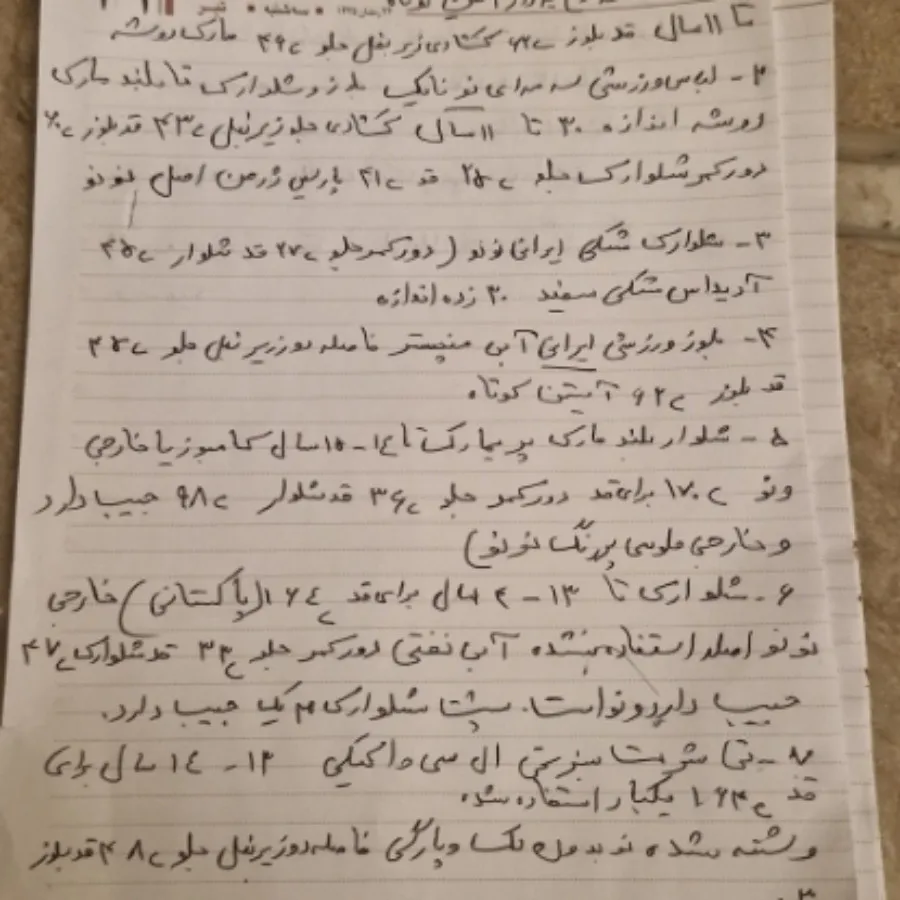 تا ۱۱سال قد بلوز ۶۲c گشادی زیر بغل جلو ۴۶c مارک روشه
۲- لباس ورزشی سرمه‌ای نو نایک بلوز و شلوارک تا بلند مارک
روشه اندازه ۳۰ تا ۱۱سال گشادی جلو زیر بغل ۴۳c قد بلوز
دور کمر شلوارک جلو ۲۵c قد ۴۱c پاریس ژرمن اصل نو نو
۳- شلوارک مشکی ایرانی نو نو (دور کمر جلو ۲۷c قد شلوار ۴۵c
آدیداس مشکی سفید ۳۰ زده اندازه
۴- بلوز ورزشی ایرانی آبی منچستر فاصله دو زیر بغل جلو
قد بلوز ۶۲c آستین کوتاه
۵- شلوار بلند مارک پریمارک تا ۱۴-۱۵سال کامبوزیا خارجی
ونو ۱۷۰c برای قد دور کمر جلو ۳۶c قد شلوار ۹۸c جیب دارد
و خارجی طوسی پررنگ نو نو)
۶- شلوارک تا ۱۳-۱۲سال برای قد ۱۶۴c (پاکستانی) خارجی
نو نو اصلا استفاده نشده آبی نفتی دور کمر جلو ۳۳c قد شلوارک ۴۷c
جیب دارد و نو است. پشت شلوارک هم یک جیب دارد.
۷- تی شرت سبز یخی ال سی وایکیکی ۱۳-۱۴ سال برای
قد ۱۶۴c یکبار استفاده شده
و شسته شده نو بدون لک و پارگی فاصله دو زیر بغل جلو ۴۸c قد بلوز